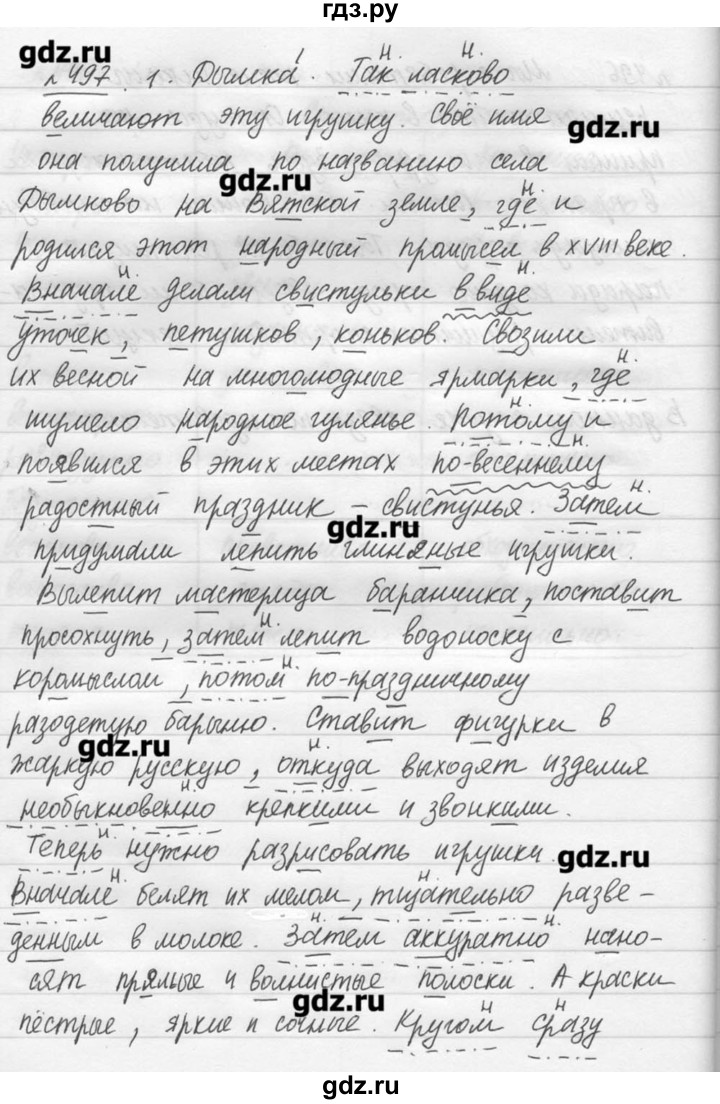 гдз.ру
gdz.ru
№497 1. Дымка. Так ласково
величают эту игрушку. Своё имя
gdz.ru
она получила по названию села
gdz.ru
Дымково на Вятской земле, где и
родился этот народный промысел в XVIII веке.
Вначале делали свистульки в виде
уточек, петушков, коньков. Свозили
их весной на многолюдные ярмарки, где
шумело народное гулянье. Потому и
появился в этих местах по-весеннему
радостный праздник - свистунья. Затем
gdz.ru
придумали лепить глиняные игрушки.
Вылепит мастерица баранчика, поставит
просохнуть, затем лепит водоноску с
коромыслом, потом по-праздничному
разодетую барыню. Ставит фигурки в
gdz.ru
жаркую русскую, откуда выходят изделия
необыкновенно крепкими и звонкими.
Теперь нужно разрисовать игрушки.
gdz.ru
Вначале белят их мелом, тщательно разве-
денным в молоке. Затем аккуратно нано-
сят прямые и волнистые полоски. А краски
gdz.ru
пёстрые, яркие и сочные. Кругом сразу
gdz.ru